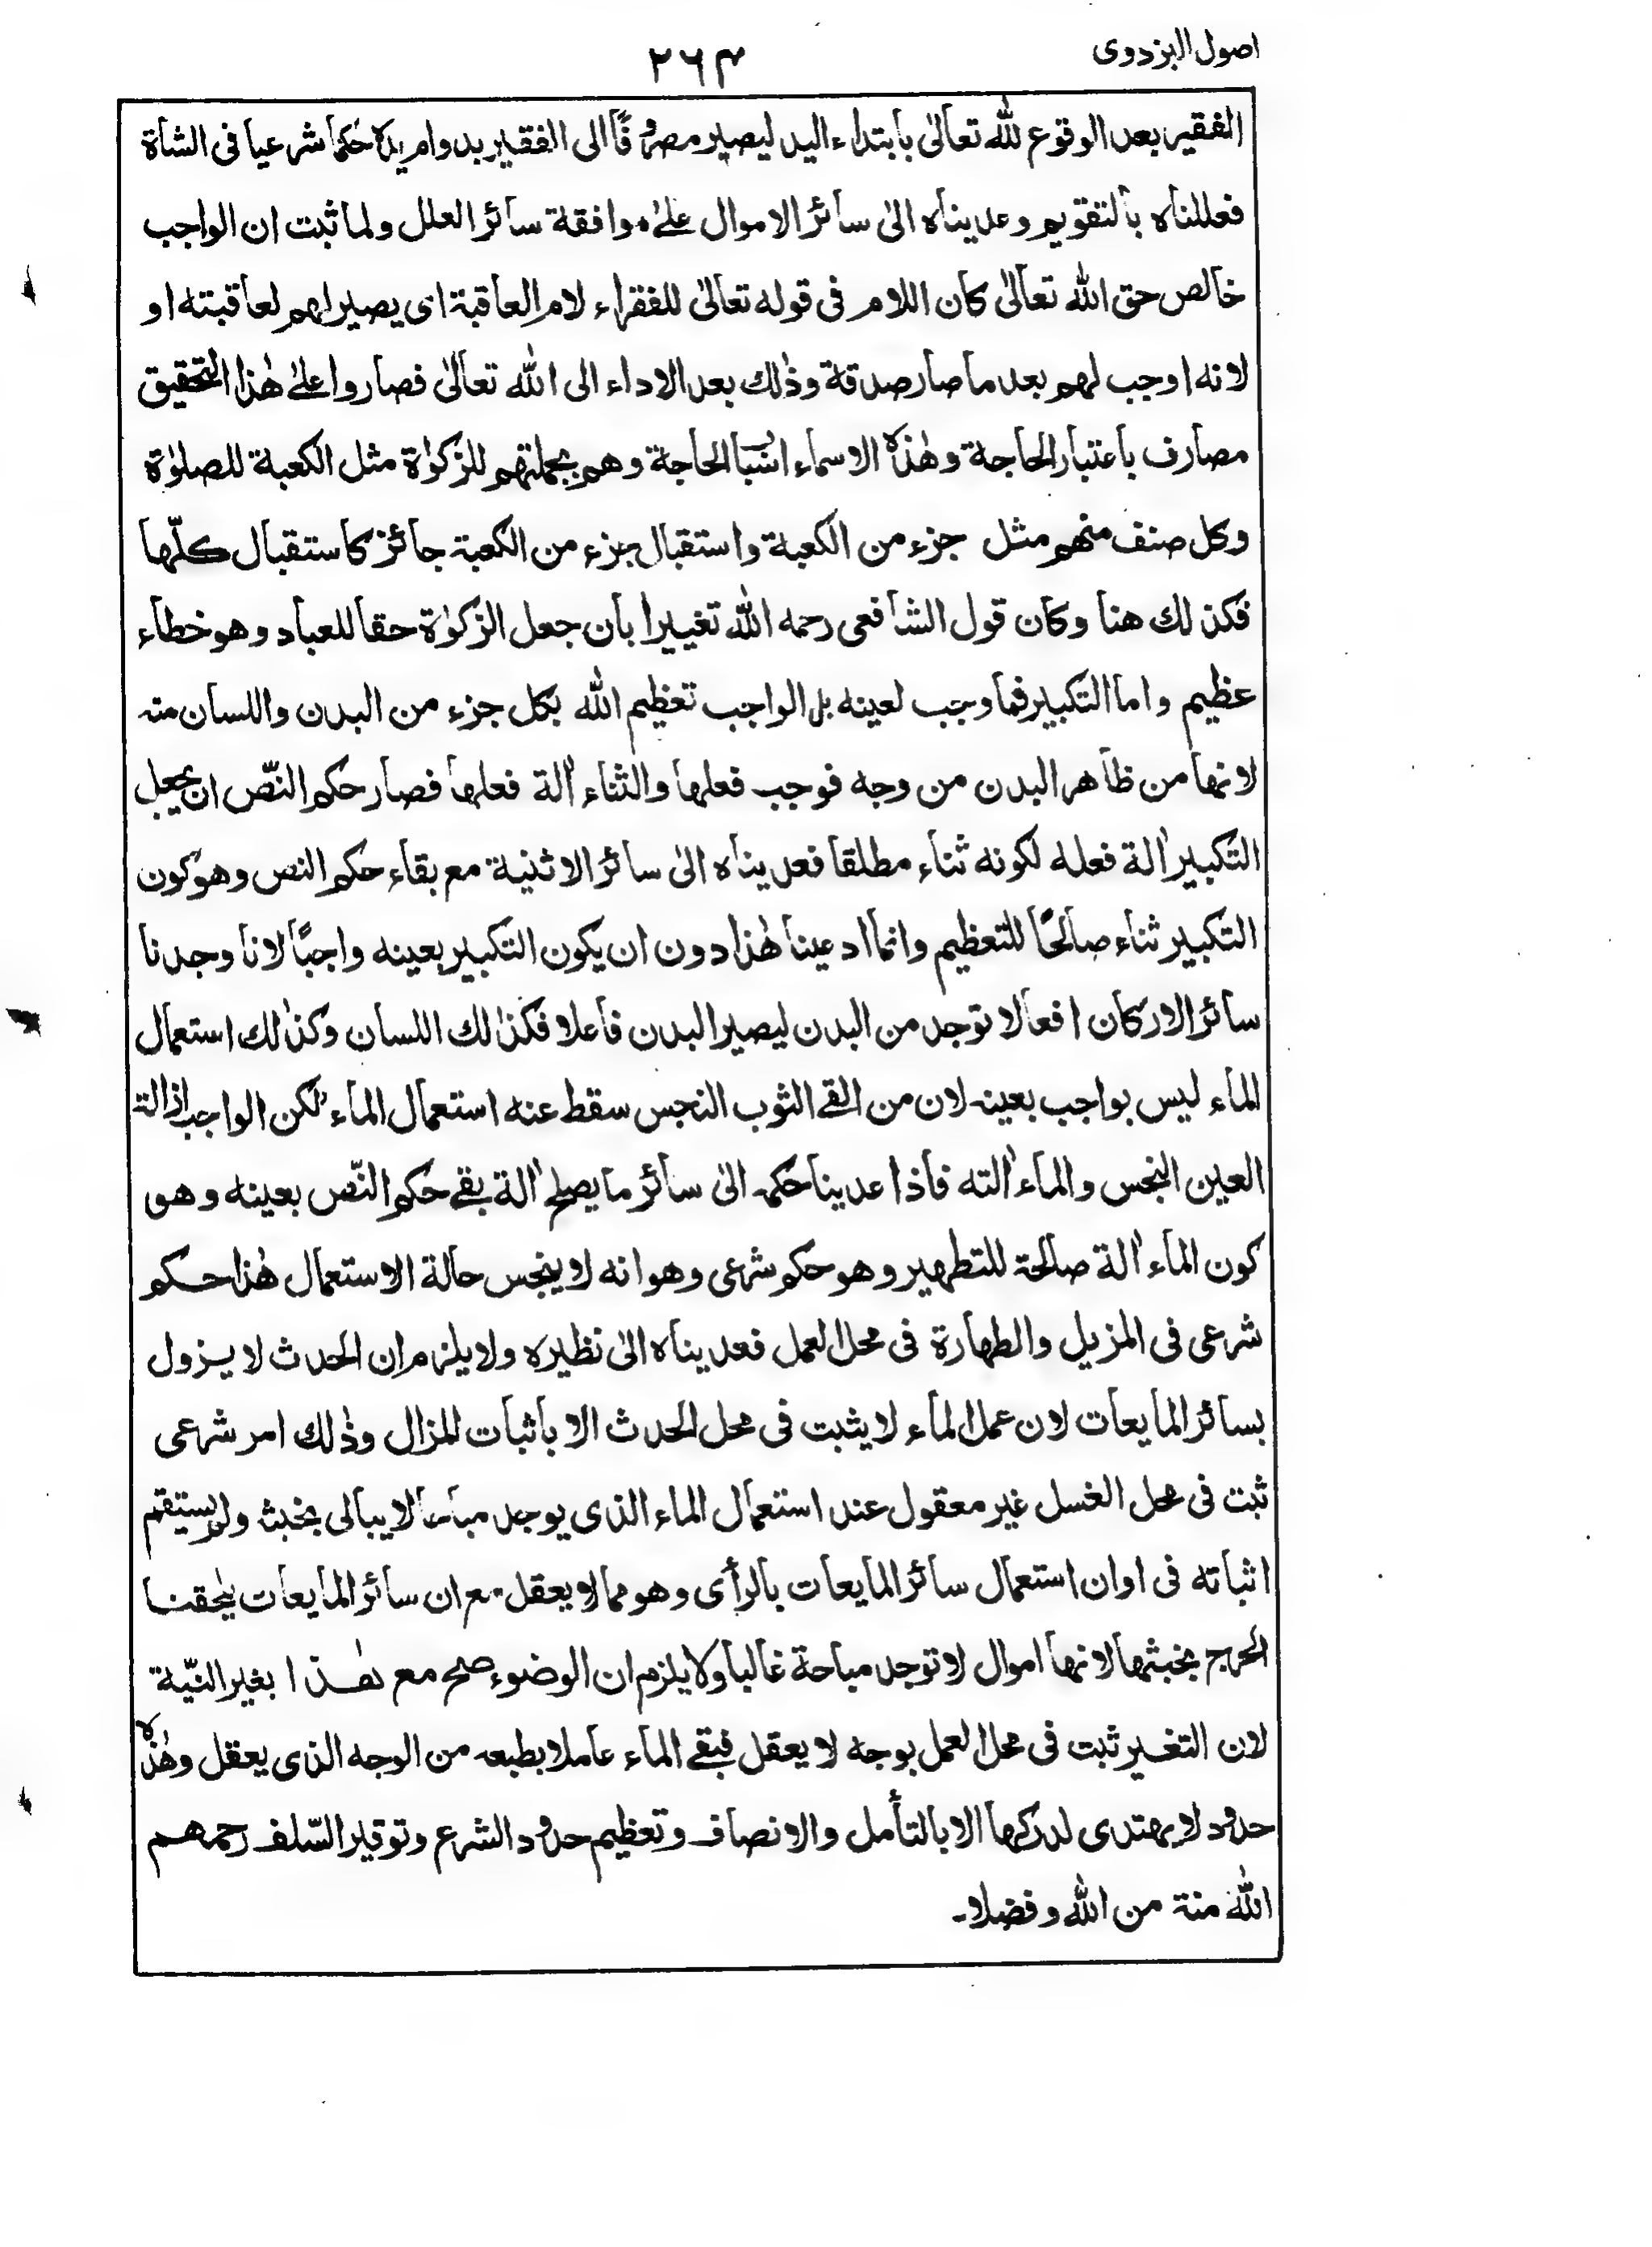 اصول البزدوی
٢٦٤
الفقير بعد الوقوع لله تعالىٰ بابتداء اليد ليصير مصروفًا الى الفقير بدوام يده حكما شرعيا فى الشاة
فعللناه بالتقويم وعديناه الىٰ سائر الاموال علىٰ موافقة سائر العلل ولما ثبت ان الواجب
خالص حق الله تعالىٰ كان اللام فى قوله تعالىٰ للفقراء لام العاقبة اى يصير لهم لعاقبته او
لانه اوجب لهم بعد ما صار صدقة وذٰلك بعد الاداء الى الله تعالىٰ فصاروا علىٰ هٰذا التحقيق
مصارف باعتبار الحاجة وهٰذه الاسماء اسباب الحاجة وهم بجملتهم للزكوٰة مثل الكعبة للصلوٰة
وكل صنف منهم مثل جزء من الكعبة واستقبال جزء من الكعبة جائز كاستقبال كلّها
فكذلك هنا وكان قول الشافعى رحمه الله تغييرا بان جعل الزكوٰة حقا للعباد وهو خطاء
عظيم واما التكبير فما وجب لعينه بل الواجب تعظيم الله بكل جزء من البدن واللسان منه
لانها من ظاهر البدن من وجه فوجب فعلها والثناء اٰلة فعلها فصار حكم النّص ان يجعل
التكبير اٰلة فعله لكونه ثناء مطلقا فعديناه الىٰ سائر الاثنية مع بقاء حكم النص وهو كون
التكبير ثناء صالحًا للتعظيم وانما ادعينا هٰذا دون ان يكون التكبير بعينه واجبًا لانا وجدنا
سائر الاركان افعالا توجد من البدن ليصير البدن فاعلا فكذٰلك اللسان وكذٰلك استعمال
الماء ليس بواجب بعينه لان من القى الثوب النجس سقط عنه استعمال الماء لٰكن الواجب ازالة
العين النجس والماء اٰلته فاذا عدينا حكمه الىٰ سائر ما يصلح اٰلة بقى حكم النّص بعينه وهو
كون الماء اٰلة صالحة للتطهير وهو حكم شرعى وهو انه لا ينجس حالة الاستعمال هٰذا حكم
شرعى فى المزيل والطهارة فى محل العمل فعديناه الىٰ نظيره ولا يلزم ان الحدث لا يزول
بسائر المايعات لان عمل الماء لا يثبت فى محل الحدث الا باثبات المزال وذٰلك امر شرعى
ثبت فى محل الغسل غير معقول عند استعمال الماء الذى يوجد مباحا لا يبالى بخبثه ولم يستقم
اثباته فى اوان استعمال سائر المايعات بالرأى وهو مما لا يعقل مع ان سائر المايعات يلحقنا
الحرج بخبثها لانها اموال لا توجد مباحة غالبا ولا يلزم ان الوضوء صح مع هٰذا بغير النيّة
لان التغير ثبت فى محل العمل بوجه لا يعقل فبقى الماء عاملا بطبعه من الوجه الذى يعقل وهٰذه
حدود لا يهتدى لدركها الا بالتأمل والانصاف وتعظيم حدود الشرع وتوقير السّلف رحمهم
الله منة من الله وفضلا۔